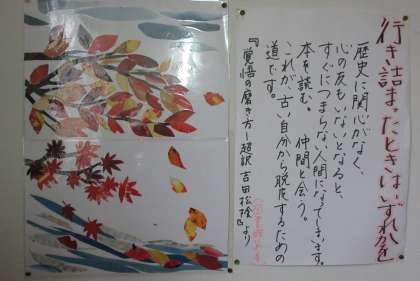 行き詰まったときはいずれかを
歴史に関心がなく、
心の友もいないとなると、
すぐにつまらない人間になってしまいます。
本を読む。 仲間と会う。
これが、古い自分から脱皮するための
道です。
『覚悟の磨き方―超訳 吉田松陰』より